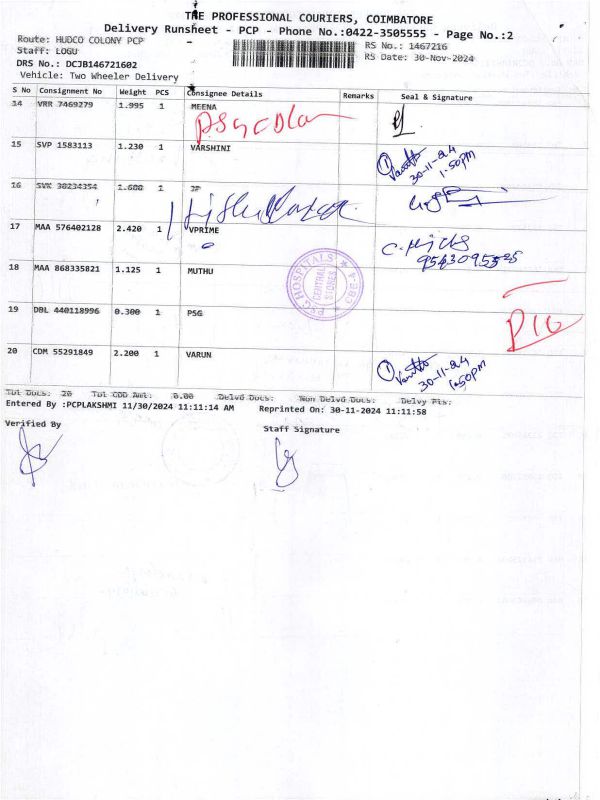 THE PROFESSIONAL COURIERS, COIMBATORE
Delivery Runsheet - PCP - Phone No.:0422-3505555 - Page No.:2
Route: HUDCO COLONY PCP
RS No.: 1467216
Staff: LOGU
RS Date: 30-Nov-2024
DRS No.: DCJB146721602
Vehicle: Two Wheeler Delivery
S No Consignment No Weight PCS Consignee Details Remarks Seal & Signature
14 VRR 7469279 1.995 1 MEENA
15 SVP 1583113 1.230 1 VARSHINI
30-11-24
1:50pm
16 SVK 30234354 1.600 1 JP
17 MAA 576402128 2.420 1 VPRIME
18 MAA 868335821 1.125 1 MUTHU
PSG HOSPITALS
CENTRAL STORES
19 DBL 440118996 0.300 1 PSG
20 CDM 55291849 2.200 1 VARUN
30-11-24
1:50pm
Tot Docs: 20 Tot COD Amt: 0.00 Delvd Docs: Non Delvd Docs: Delvy Pts:
Entered By :PCPLAKSHMI 11/30/2024 11:11:14 AM Reprinted On: 30-11-2024 11:11:58
Verified By
Staff Signature